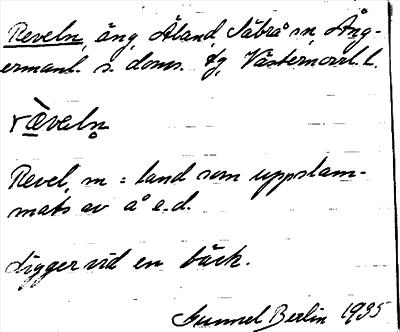 Reveln, äng, Åland, Säbrå sn, Ång-
ermanl. s. doms. fg, Västernorrl. l.
ræveln̥
Revel, m = land som uppslam-
mats av å e.d.
Ligger vid en bäck.
Gunnel Berlin 1935